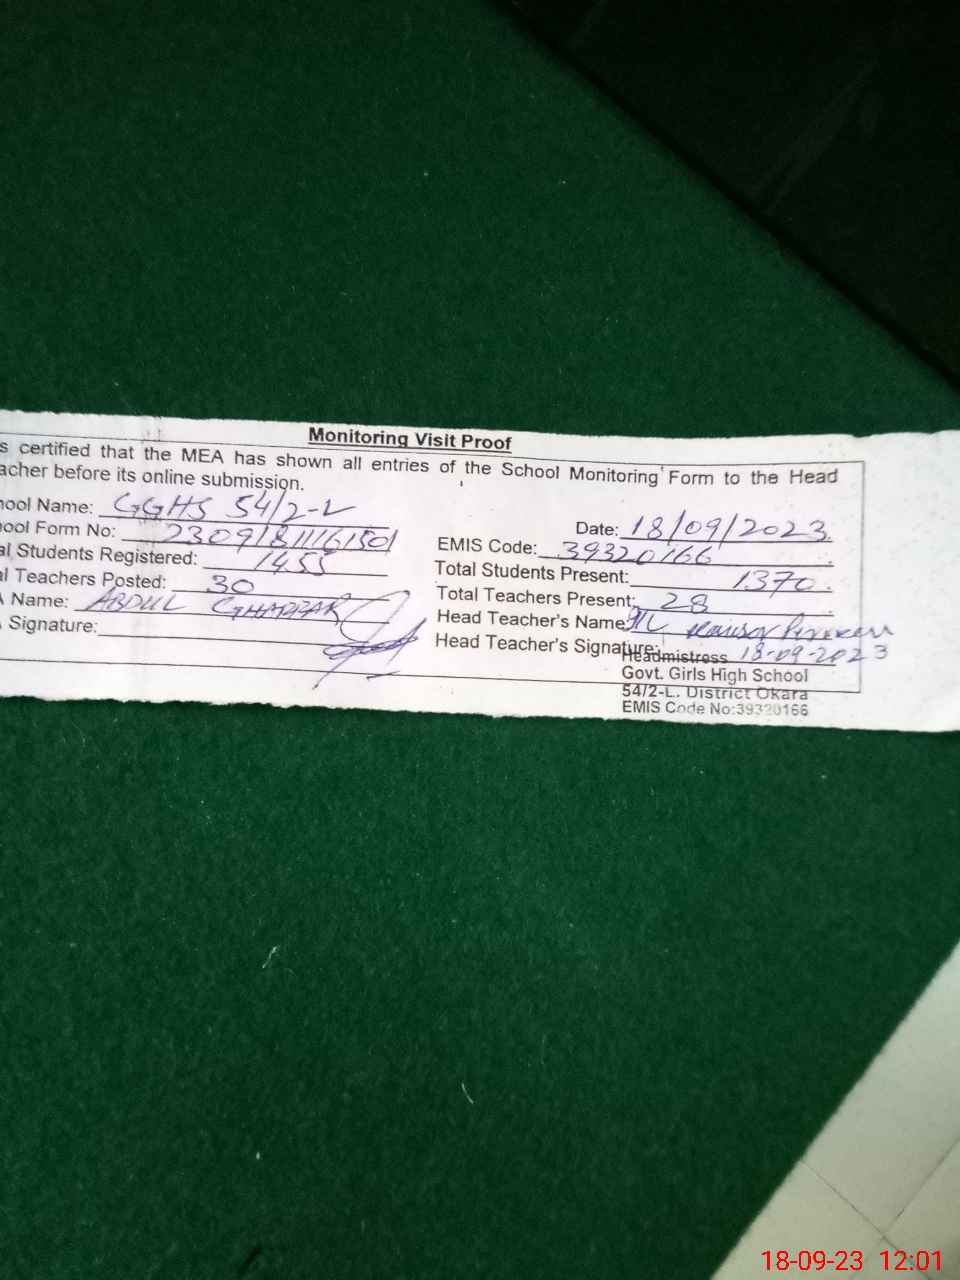 Monitoring Visit Proof
s certified that the MEA has shown all entries of the School Monitoring Form to the Head
acher before its online submission.
ool Name: GGHS 54/2-L
Date: 18/09/2023
ool Form No: 23091811161501
EMIS Code: 39320166
al Students Registered: 1455
Total Students Present: 1370
al Teachers Posted: 30
Total Teachers Present: 28
Name: ABDUL GHAFFAR
Head Teacher's Name:
Signature:
Head Teacher's Signature: 18-09-2023
Headmistress
Govt. Girls High School
54/2-L. District Okara
EMIS Code No:39320166
18-09-23 12:01